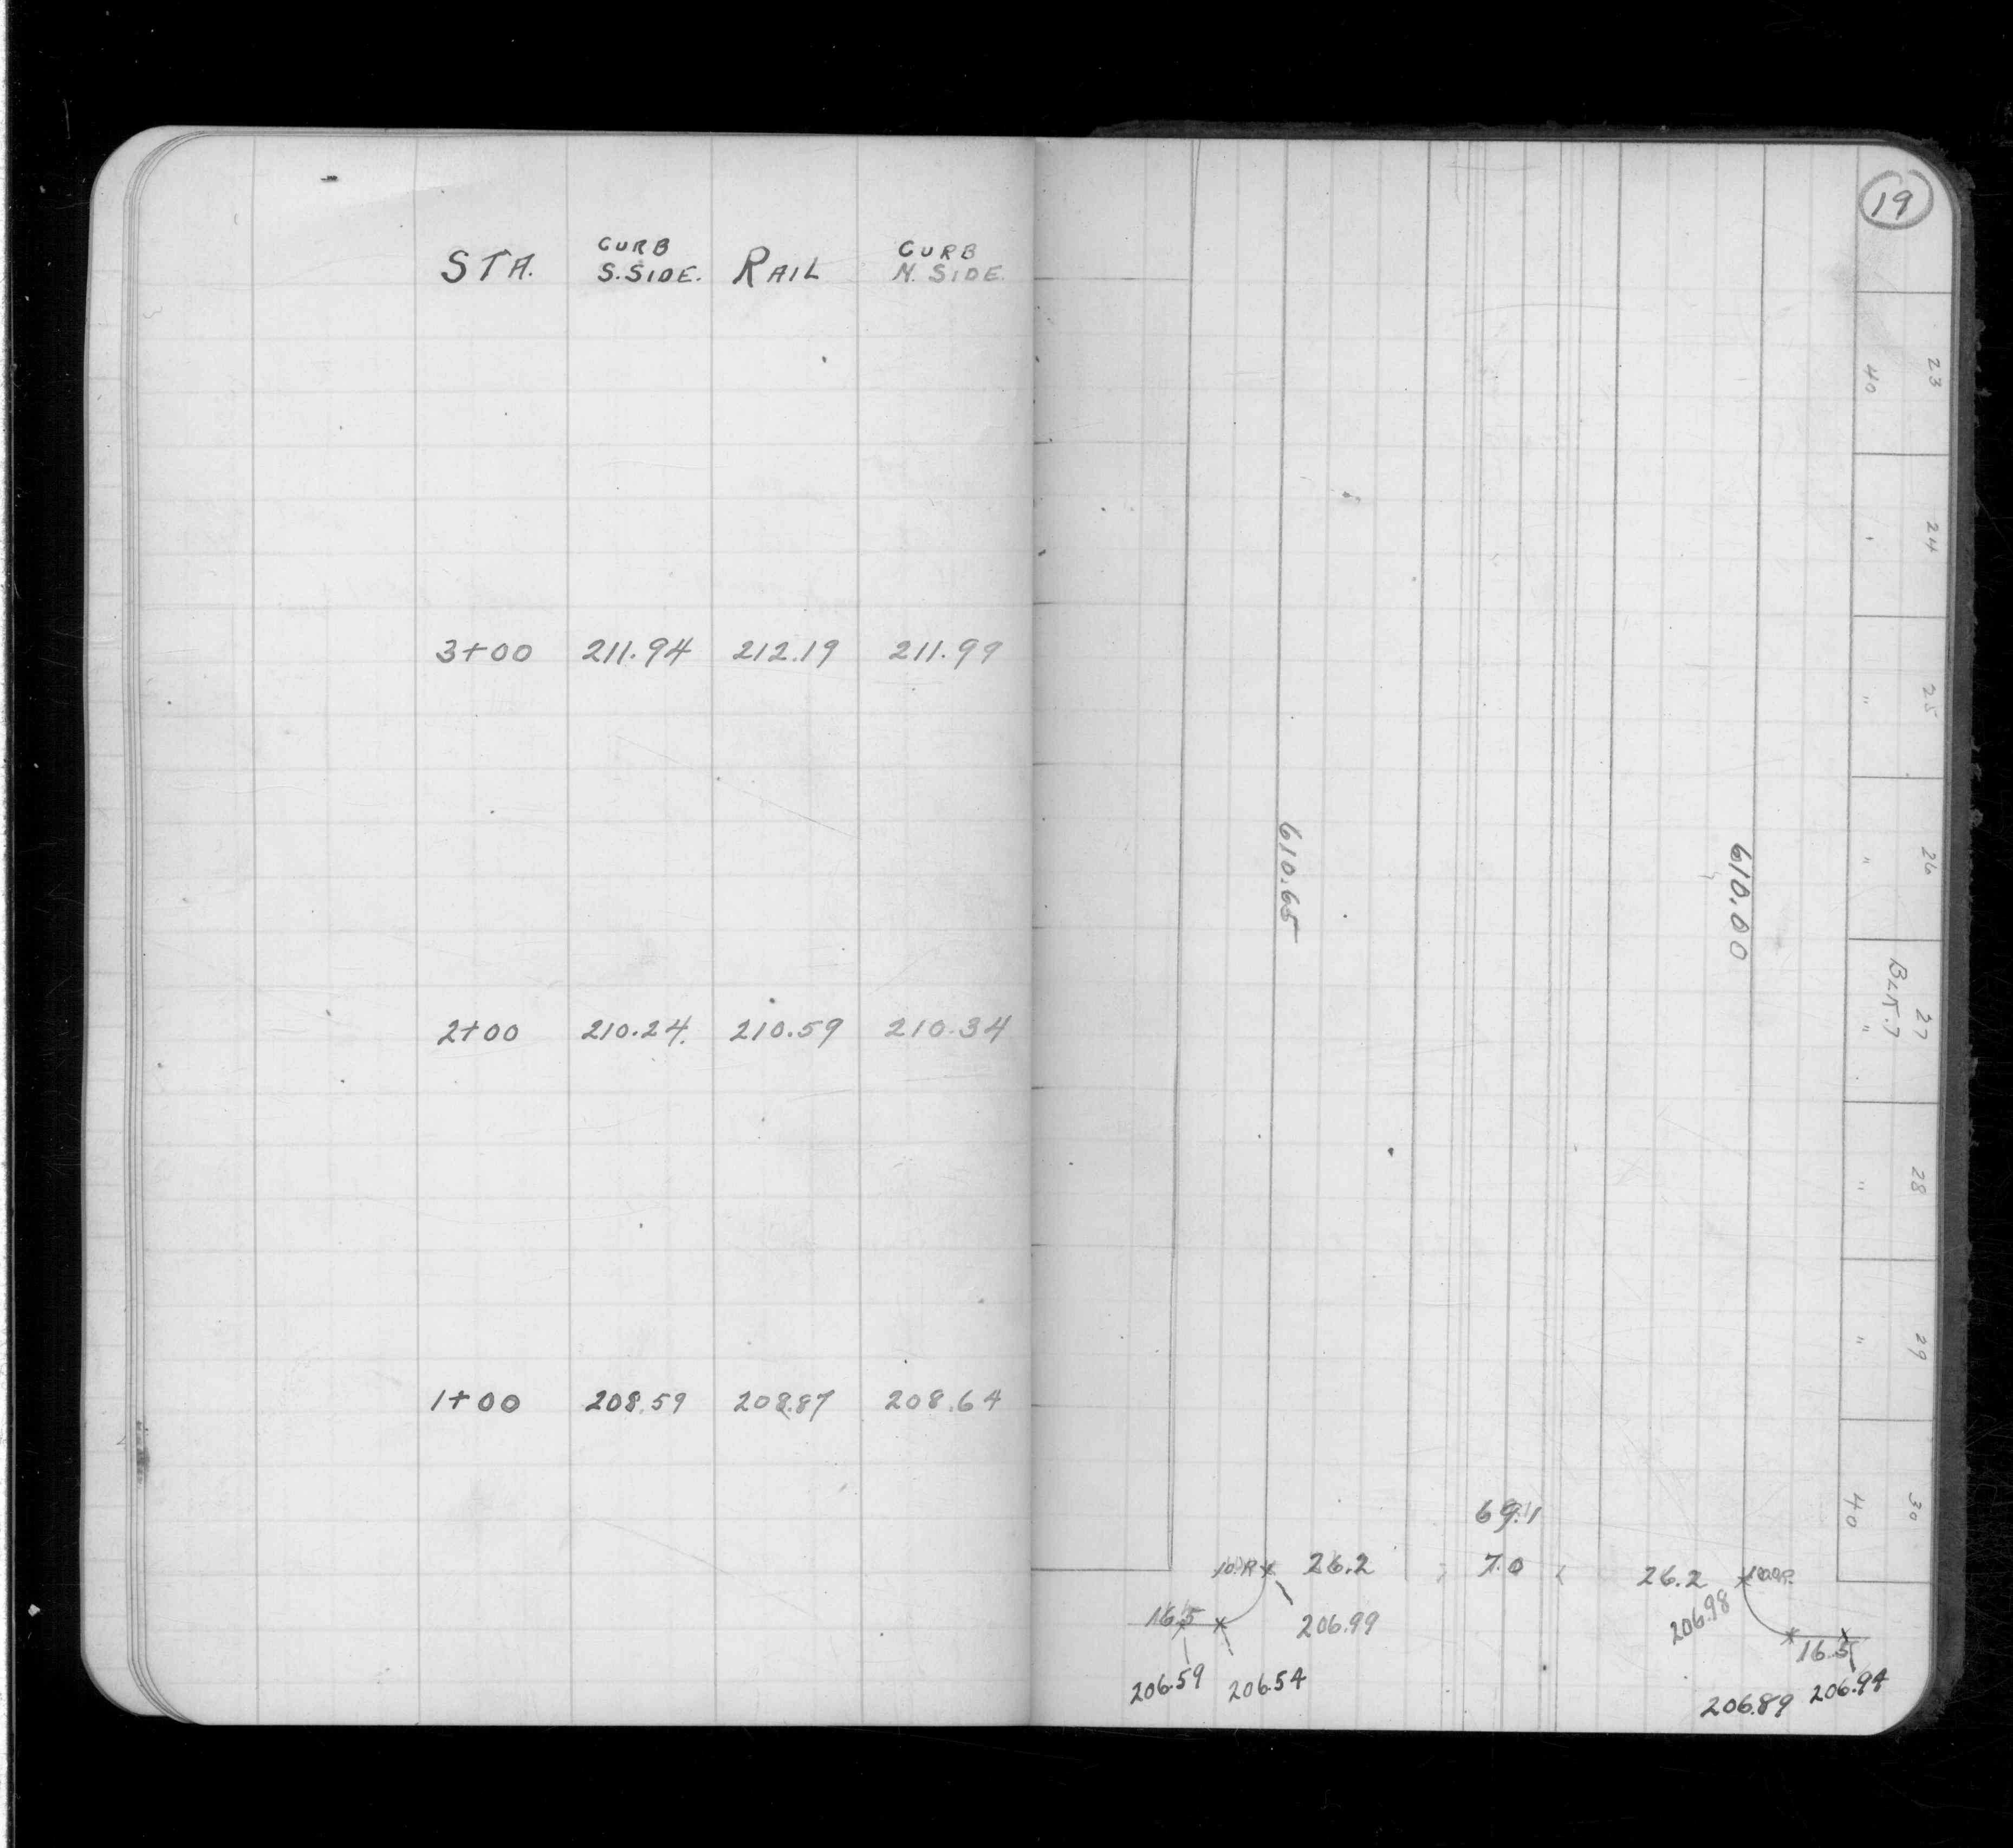 STA. CURB S.SIDE. RAIL CURB N. SIDE.
3+00 211.94 212.19 211.99
2+00 210.24 210.59 210.34
1+00 208.59 208.87 208.64
19
23
40
24
"
25
"
26
"
610.65
610.00
27
BLK.7
"
28
"
29
"
30
40
69.1
10.R 26.2 7.0 26.2
16.5 206.99 206.98 16.5
206.59 206.54 206.89 206.94